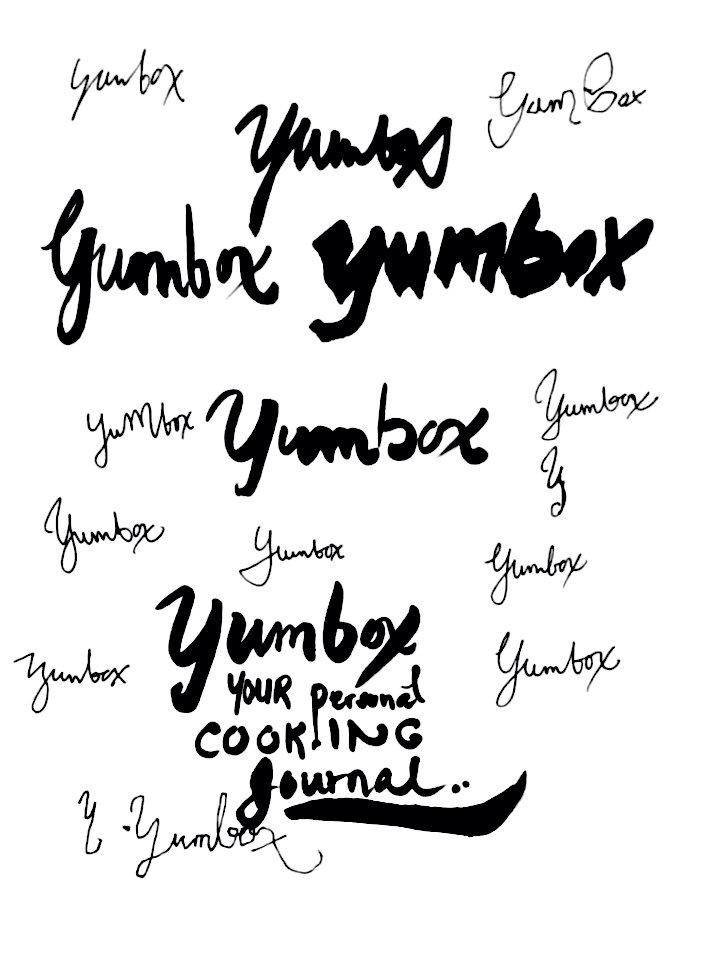 yumbox
Yum Box
Yumbox
Yumbox
yumbox
YuMbox
Yumbox
Yumbox
Y
Yumbox
Yumbox
Yumbox
Yumbox
YOUR personal
COOKING
Journal..
Yumbox
Yumbox
Y . Yumbox